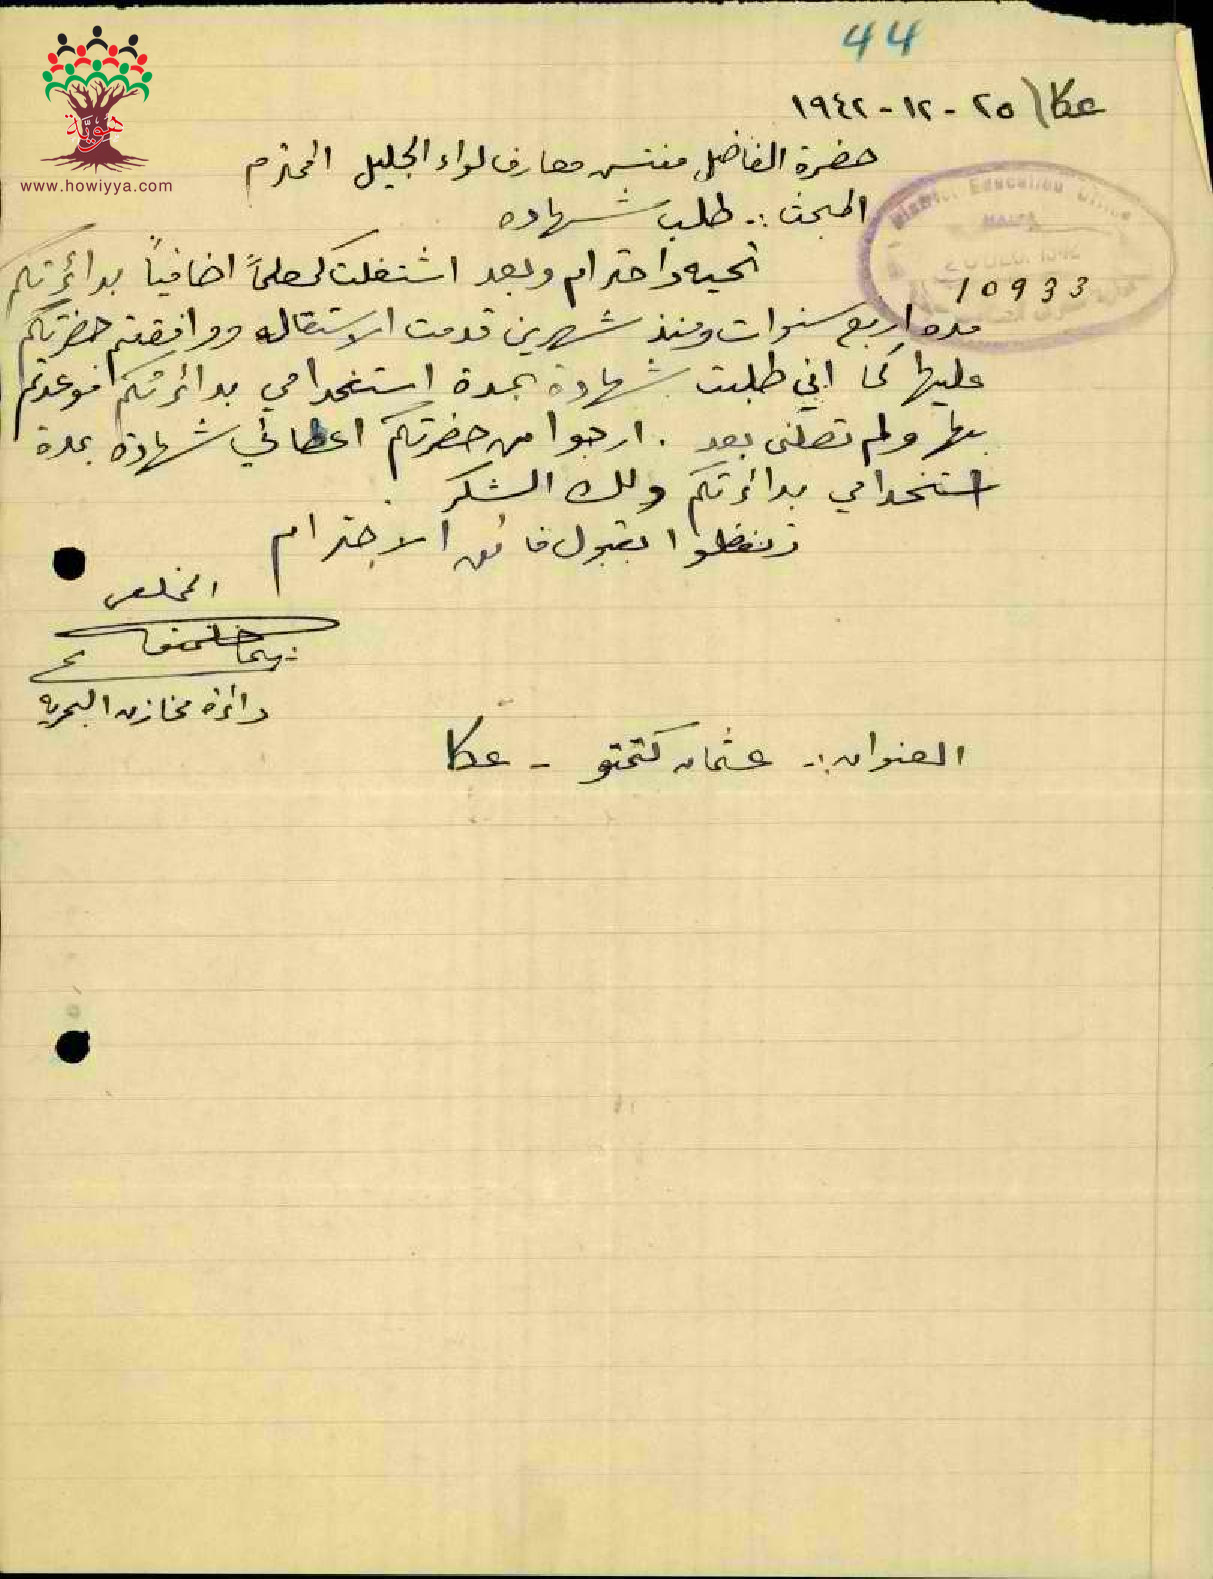 44
هوية
www.howiyya.com
عكا / ٢٥ - ١٢ - ١٩٤٢
حضرة الفاضل مفتش معارف لواء الجليل المحترم
المبحث :. طلب شهاده
District Education Office
HAIFA
10933
تحيه واحترام وبعد اشتغلت كمعلماً اضافياً بدائرتكم
مده اربع سنوات ومنذ شهرين قدمت الاستقاله ووافقتم حضرتكم
عليها كما اني طلبت شهادة بمدة استخدامي بدائرتكم فوعدتم
بها ولم تصلني بعد . ارجوا من حضرتكم اعطائي شهادة بمدة
استخدامي بدائرتكم ولك الشكر .
وتفضلوا بقبول فائق الاحترام
المخلص
دائرة مخازن البحريه
العنوان :. عثمان كتمتو - عكا